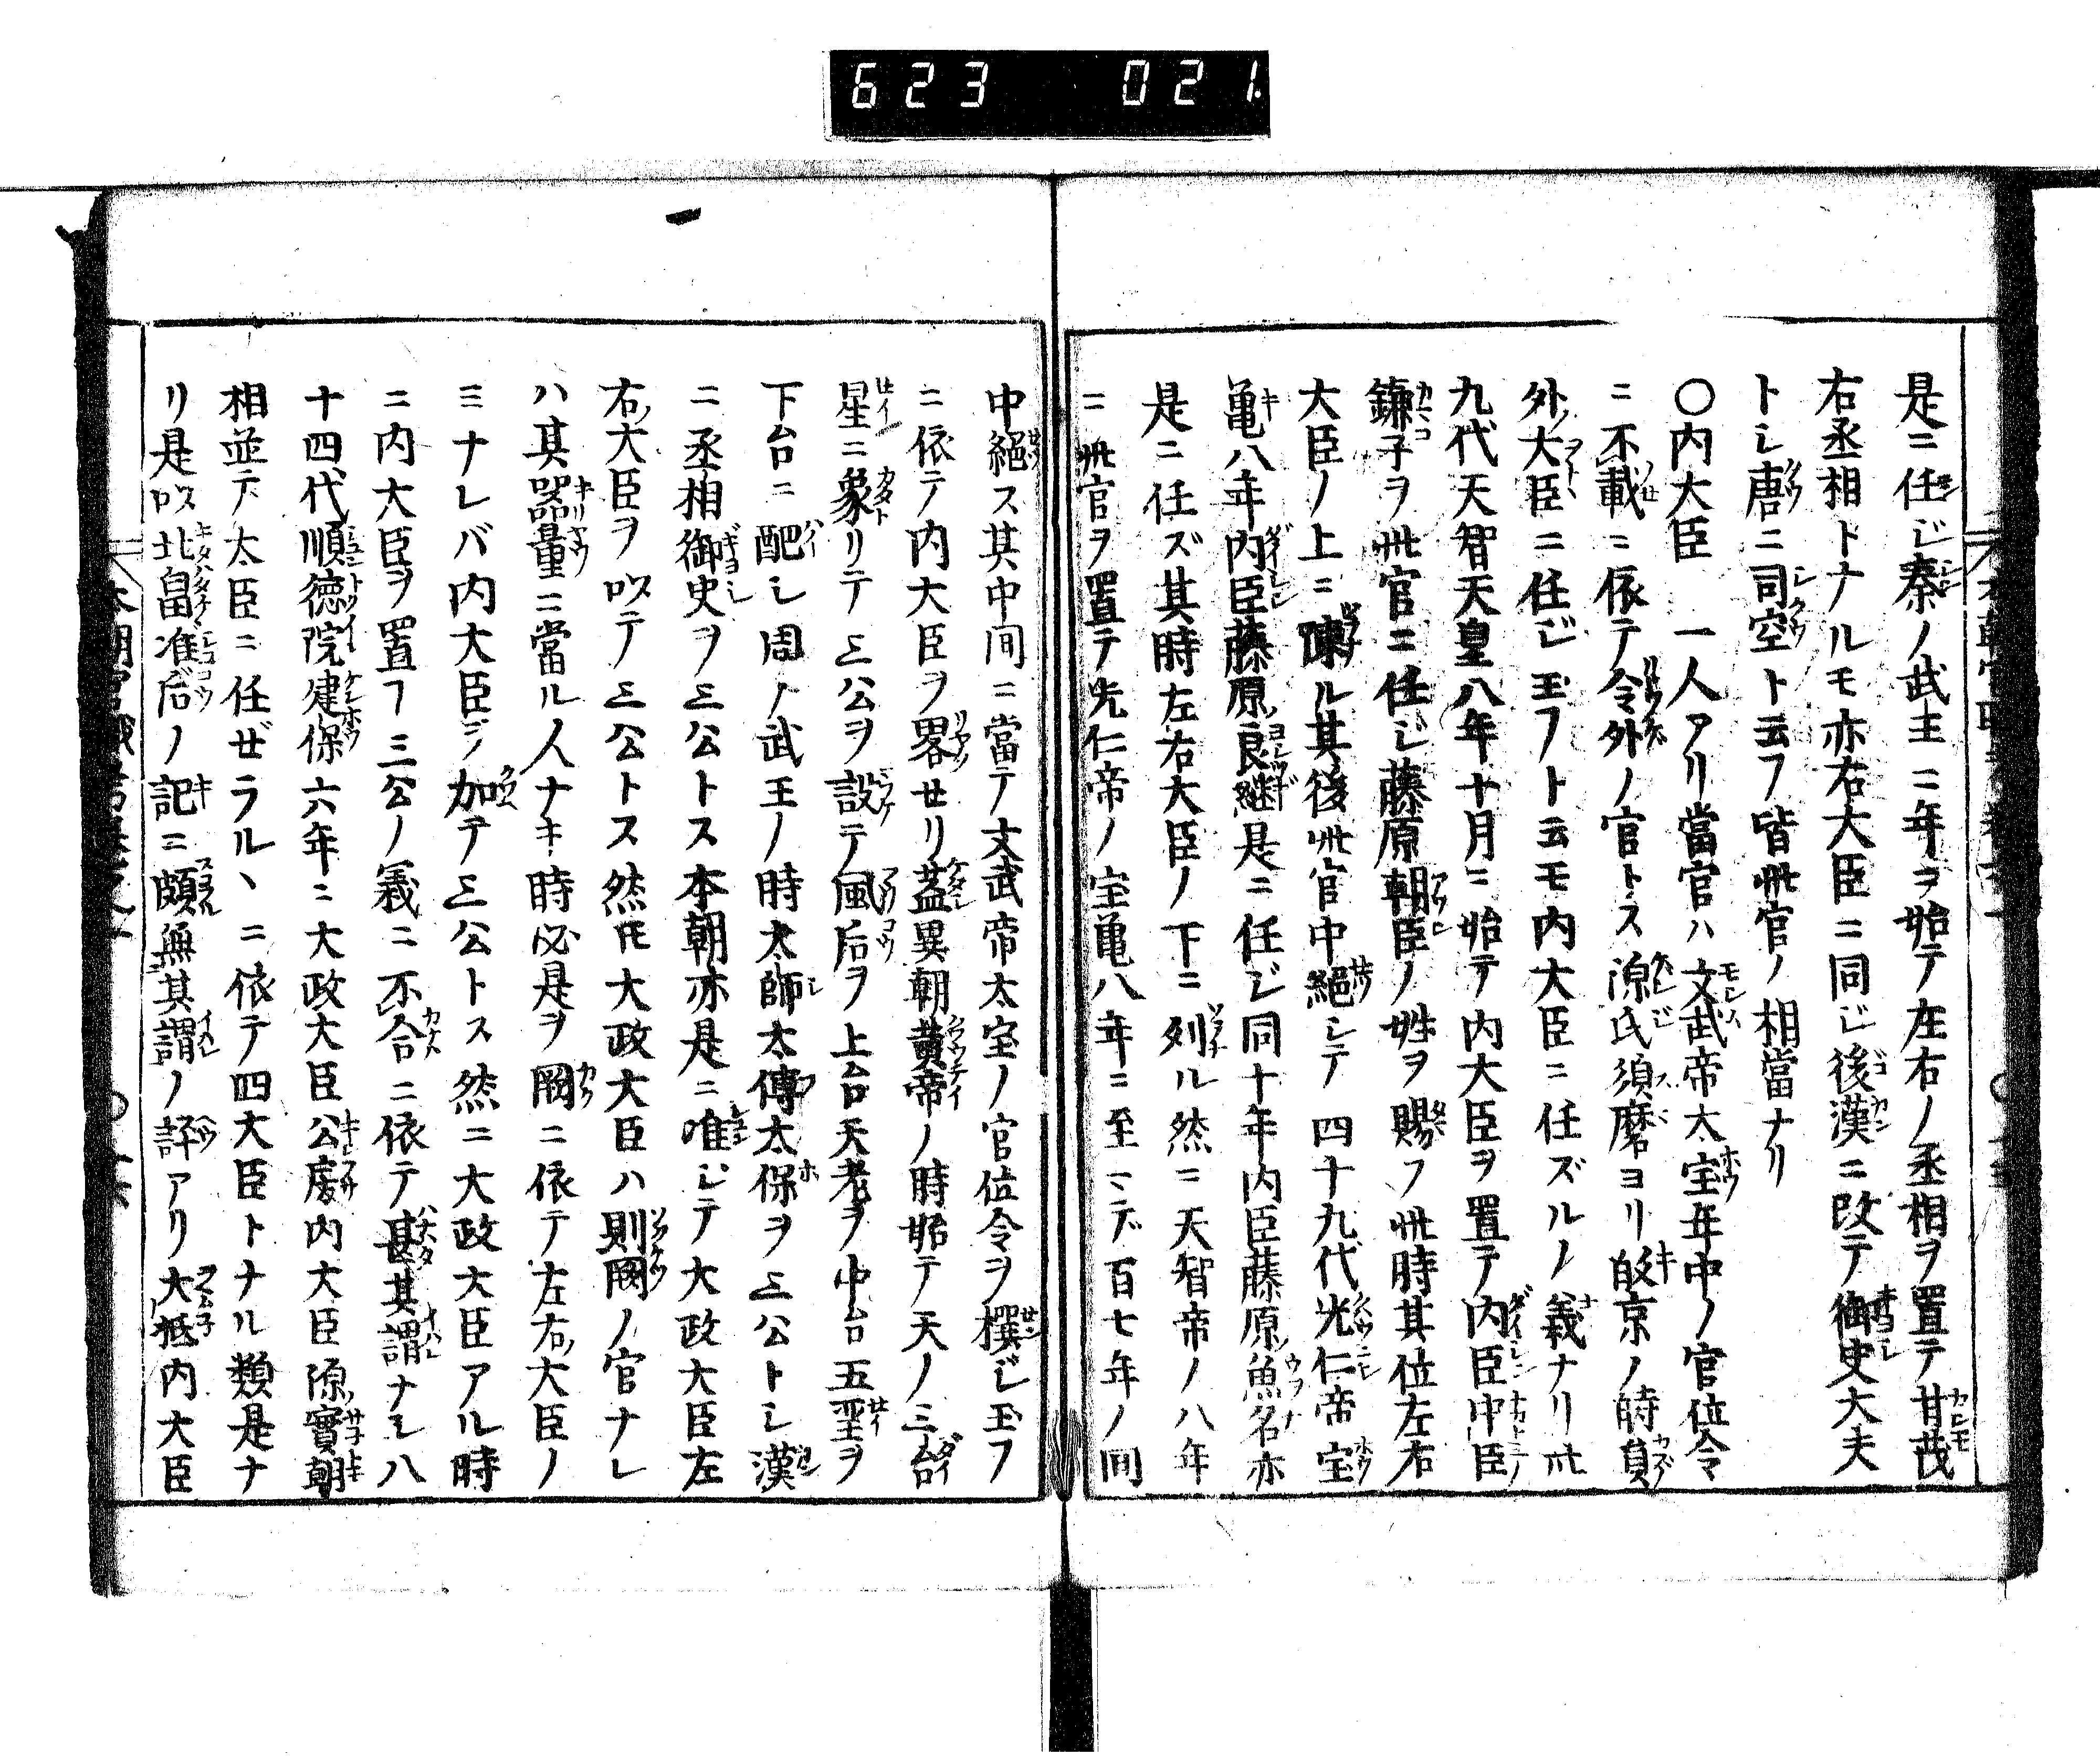 623 021
是ニ任ジ秦ノ武王二年ヲ始テ左右ノ丞相ヲ置テ甘茂
右丞相トナルモ亦右大臣ニ同ジ後漢ニ改テ御史大夫
トシ唐ニ司空ト云フ皆此官ノ相當ナリ
〇内大臣 一人アリ當官ハ文武帝太宝年中ノ官位令
ニ不載ニ依テ令外ノ官トス源氏須磨ヨリ皈京ノ時員
外ノ大臣ニ任ジ玉フト云モ内大臣ニ任ズルノ義ナリ卅
九代天智天皇八年十月ニ始テ内大臣ヲ置テ内臣中臣
鎌子ヲ此官ニ任ジ藤原朝臣ノ姓ヲ賜フ此時其位左右
大臣ノ上ニ陳ル其後此官中絕シテ四十九代光仁帝宝
亀八年内臣藤原良継是ニ任ジ同十年内臣藤原魚名亦
是ニ任ズ其時左右大臣ノ下ニ列ル然ニ天智帝ノ八年
ニ此官ヲ置テ光仁帝ノ宝亀八年ニ至ニデ百七年ノ間
中絕ス其中間ニ當テ文武帝太宝ノ官位令ヲ撰ジ玉フ
ニ依テ内大臣ヲ畧セリ蓋異朝黄帝ノ時始テ天ノ三台
星ニ象リテ三公ヲ設テ風后ヲ上台天老ヲ中台五聖ヲ
下台ニ配シ周ノ武王ノ時太師太傳太保ヲ三公トシ漢
ニ丞相御史ヲ三公トス本朝亦是ニ准ジテ大政大臣左
右大臣ヲ以テ三公トス然𪜈大政大臣ハ則闕ノ官ナレ
ハ其器量ニ當ル人ナキ時必是ヲ闕ニ依テ左右大臣ノ
ミナレバ内大臣ヲ加テ三公トス然ニ大政大臣アル時
ニ内大臣ヲ置フ三公ノ義ニ不合ニ依テ甚其謂ナシ八
十四代順徳院建保六年ニ大政大臣公房内大臣源實朝
相並テ大臣ニ任ゼラルヽニ依テ四大臣トナル類是ナ
リ是以北畠准后ノ記ニ頗無其謂ノ評アリ大抵内大臣